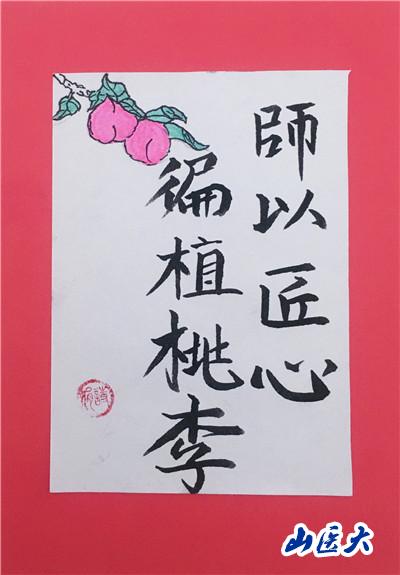 師以匠心
徧植桃李
山医大